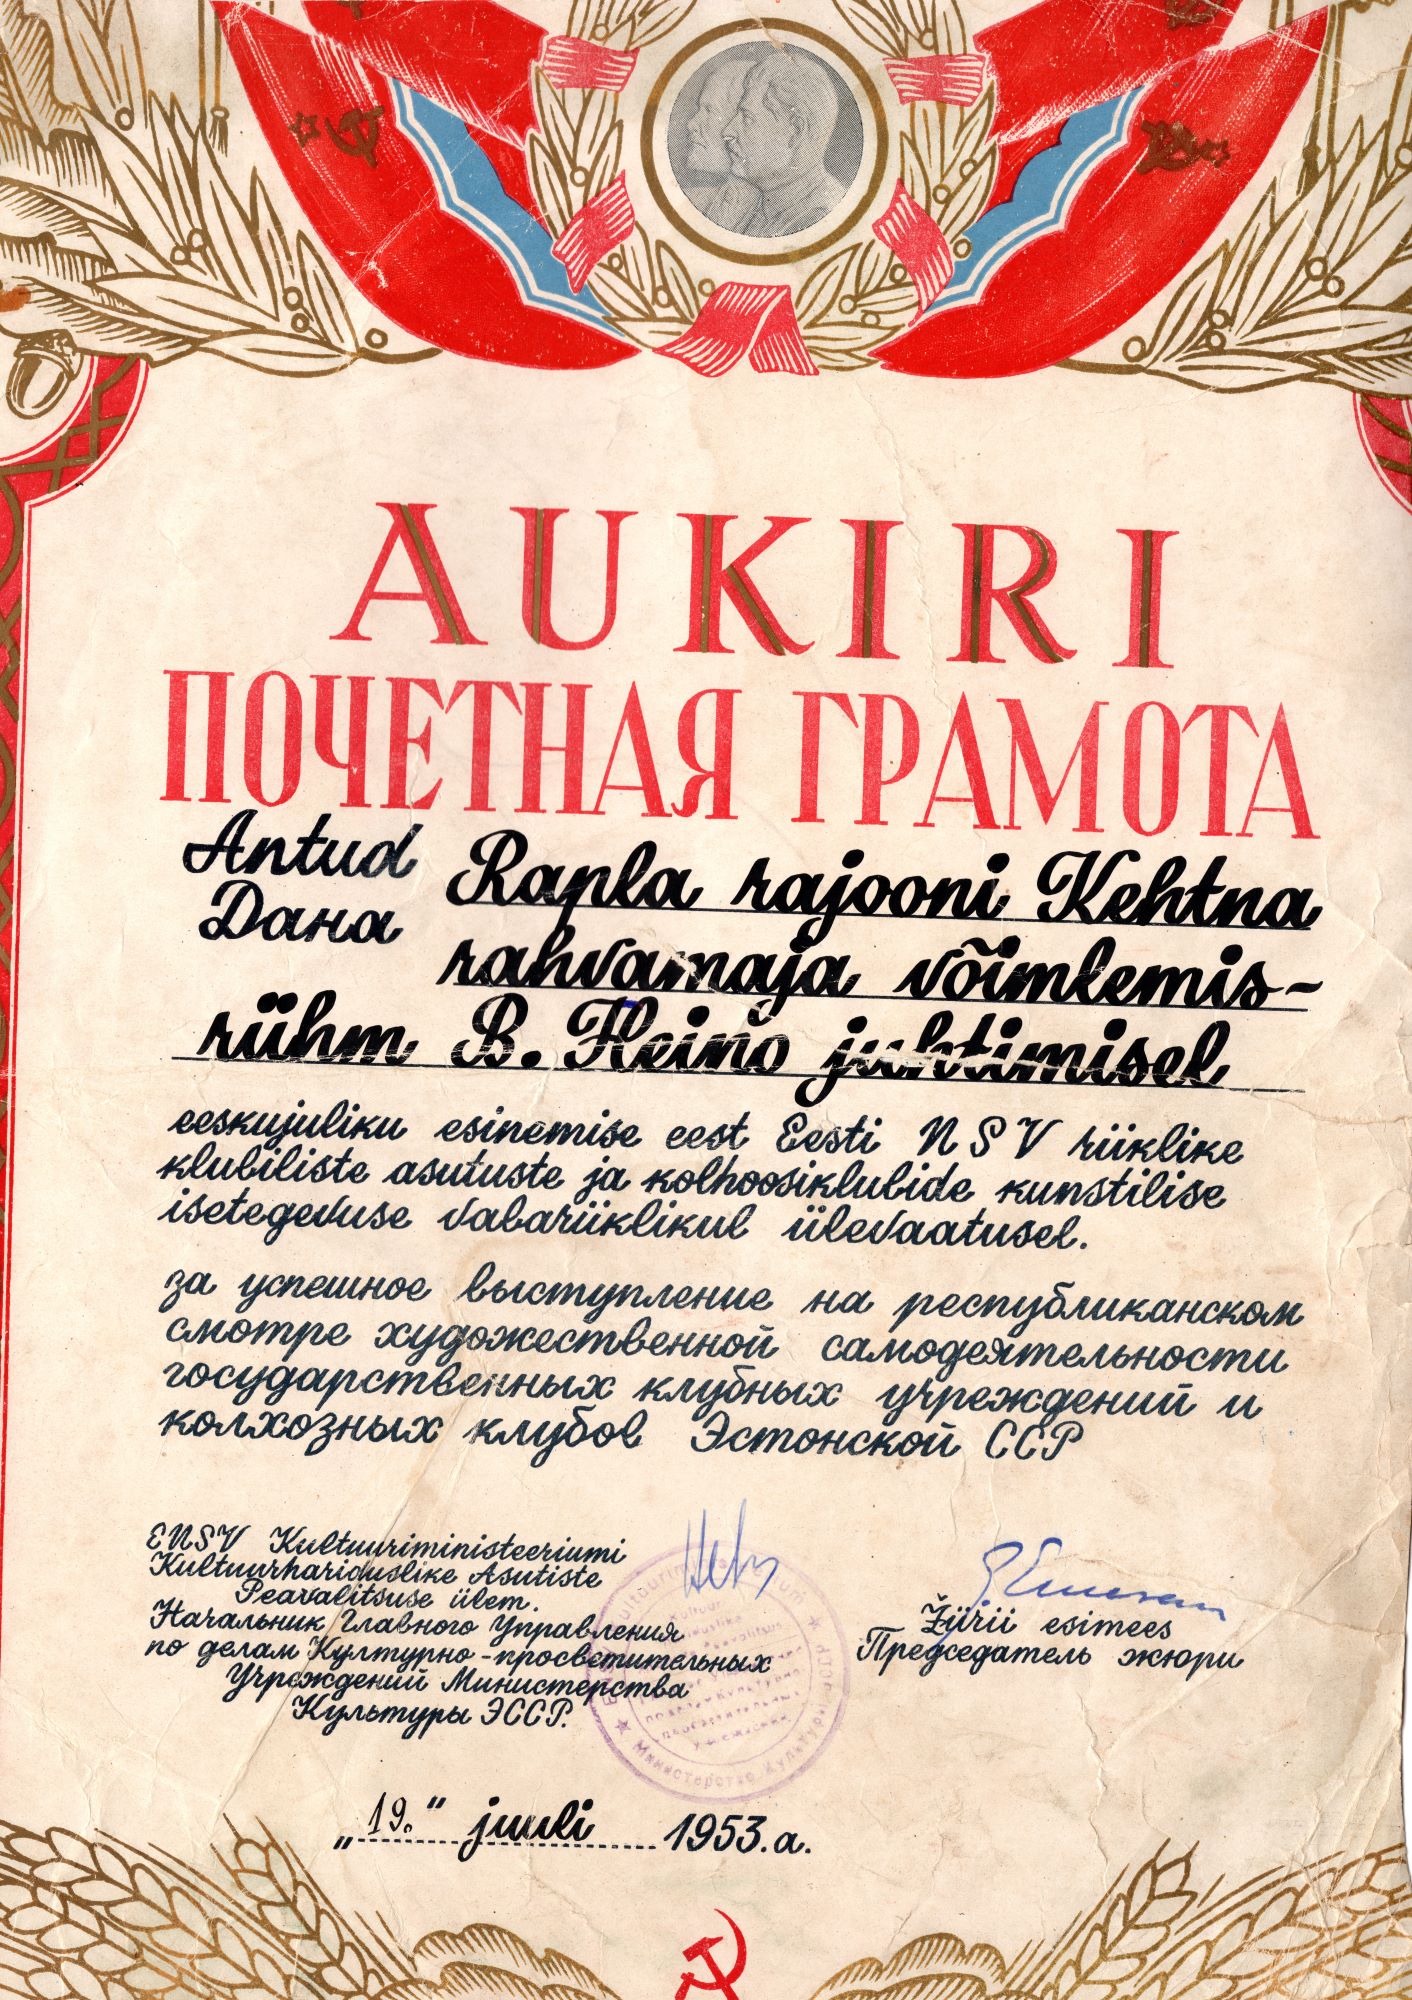 AUKIRI
ПОЧЕТНАЯ ГРАМОТА
Antud
Дана
Rapla rajooni Kehtna
rahvamaja võimlemis-
rühm B. Heino juhtimisel
eeskujuliku esinemise eest Eesti NSV riiklike
klubiliste asutuste ja kolhoosiklubide kunstilise
isetegevuse vabariiklikul ülevaatusel.
за успешное выступление на республиканском
смотре художественной самодеятельности
государственных клубных учреждений и
колхозных клубов Эстонской ССР
ENSV Kultuuriministeeriumi
Kultuurhariduslike Asutiste
Peavalitsuse ülem.
Начальник Главного Управления
по делам Културно-просветительных
Учреждений Министерства
Культуры ЭССР.
Žürii esimees
Председатель жюри
Министерство Культуры
"19." juuli 1953.a.